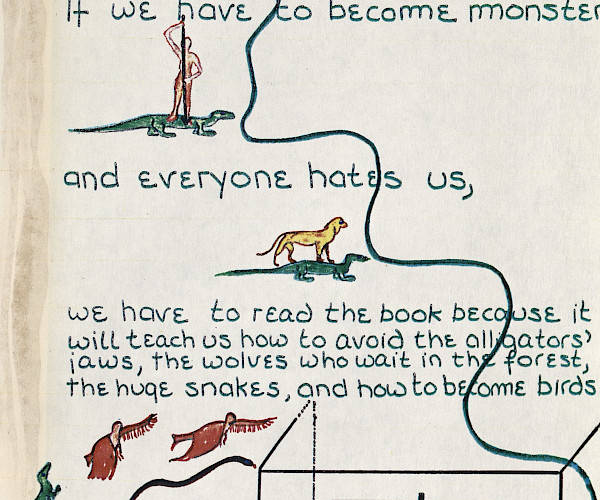 If we have to become monster
and everyone hates us,
we have to read the book because it
will teach us how to avoid the alligators'
jaws, the wolves who wait in the forest,
the huge snakes, and how to become birds